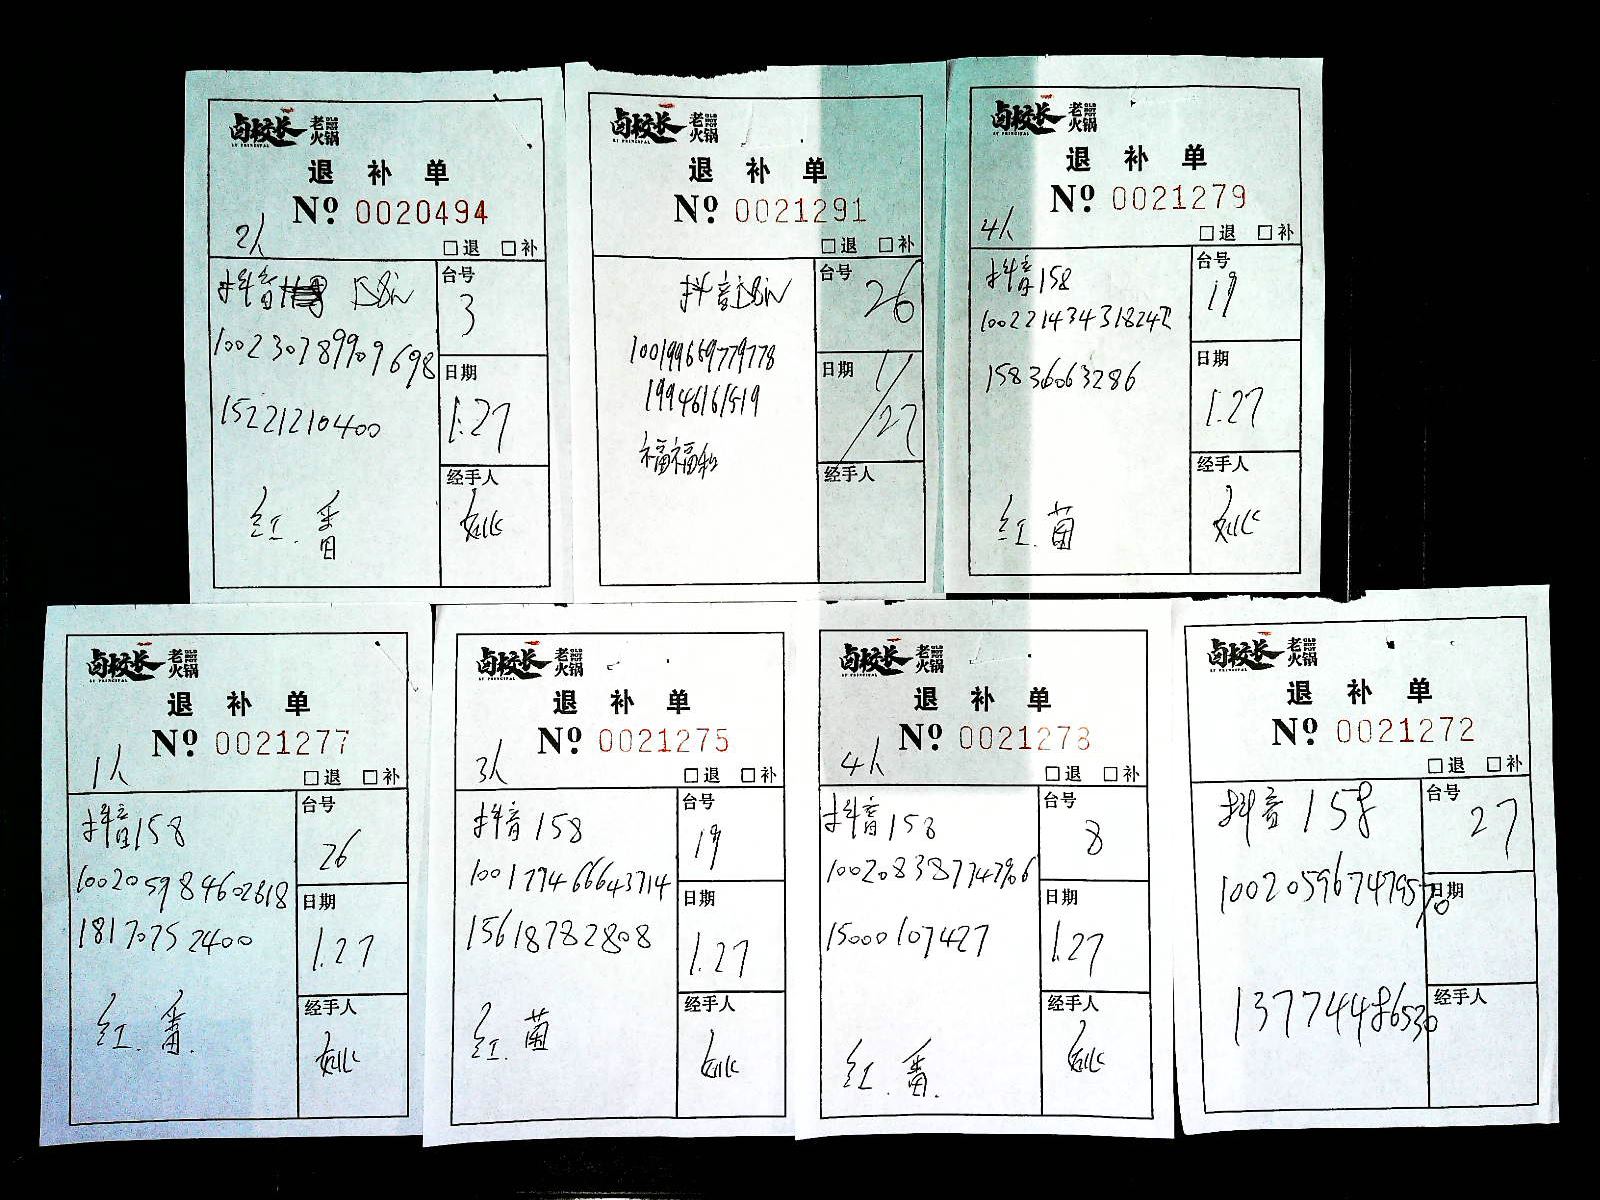 卤校长 老火锅
退补单
No. 0020494
2人
□退 □补
抖音 158
台号
3
10023078990 9698
日期
1.27
15221210400
经手人
红.番
卤校长 老火锅
退补单
No. 0021291
□退 □补
抖音158
台号
26
100199669779778
19946161519
日期
1/27
福福
经手人
卤校长 老火锅
退补单
No. 0021279
4人
□退 □补
抖音158
台号
19
日期
1.27
15836063286
经手人
红.菌
卤校长 老火锅
退补单
No. 0021277
1人
□退 □补
抖音158
台号
26
100205984602618
日期
1.27
18170752400
经手人
红.番.
卤校长 老火锅
退补单
No. 0021275
3人
□退 □补
抖音158
台号
19
100177466643714
日期
1.27
15618782808
经手人
红.菌
卤校长 老火锅
退补单
No. 0021273
4人
□退 □补
抖音158
台号
8
日期
1.27
15000107427
经手人
红.番.
卤校长 老火锅
退补单
No. 0021272
□退 □补
抖音158
台号
27
10020596747957 0
日期
13774486530
经手人